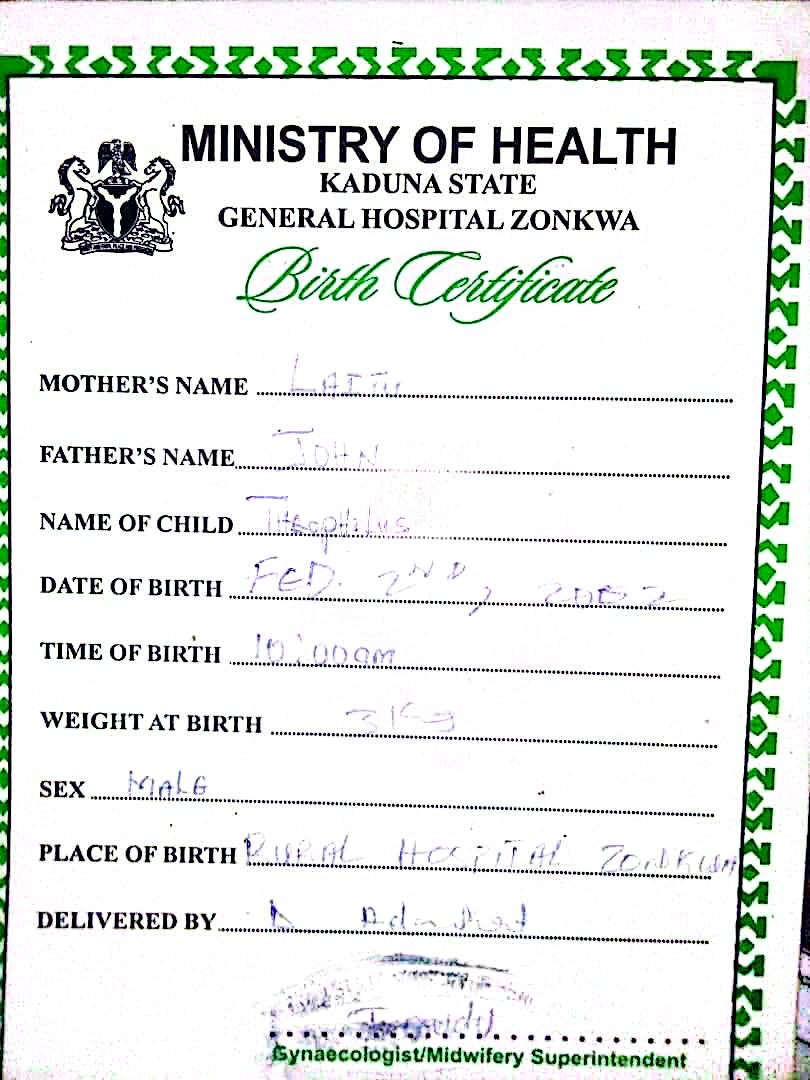 MINISTRY OF HEALTH
KADUNA STATE
GENERAL HOSPITAL ZONKWA
Birth Certificate
MOTHER'S NAME LAITU
FATHER'S NAME JOHN
NAME OF CHILD Theophilus
DATE OF BIRTH FEB. 2ND, 2002
TIME OF BIRTH 10:00am
WEIGHT AT BIRTH 3Kg
SEX MALE
PLACE OF BIRTH RURAL HOSPITAL ZONKWA
DELIVERED BY
Gynaecologist/Midwifery Superintendent